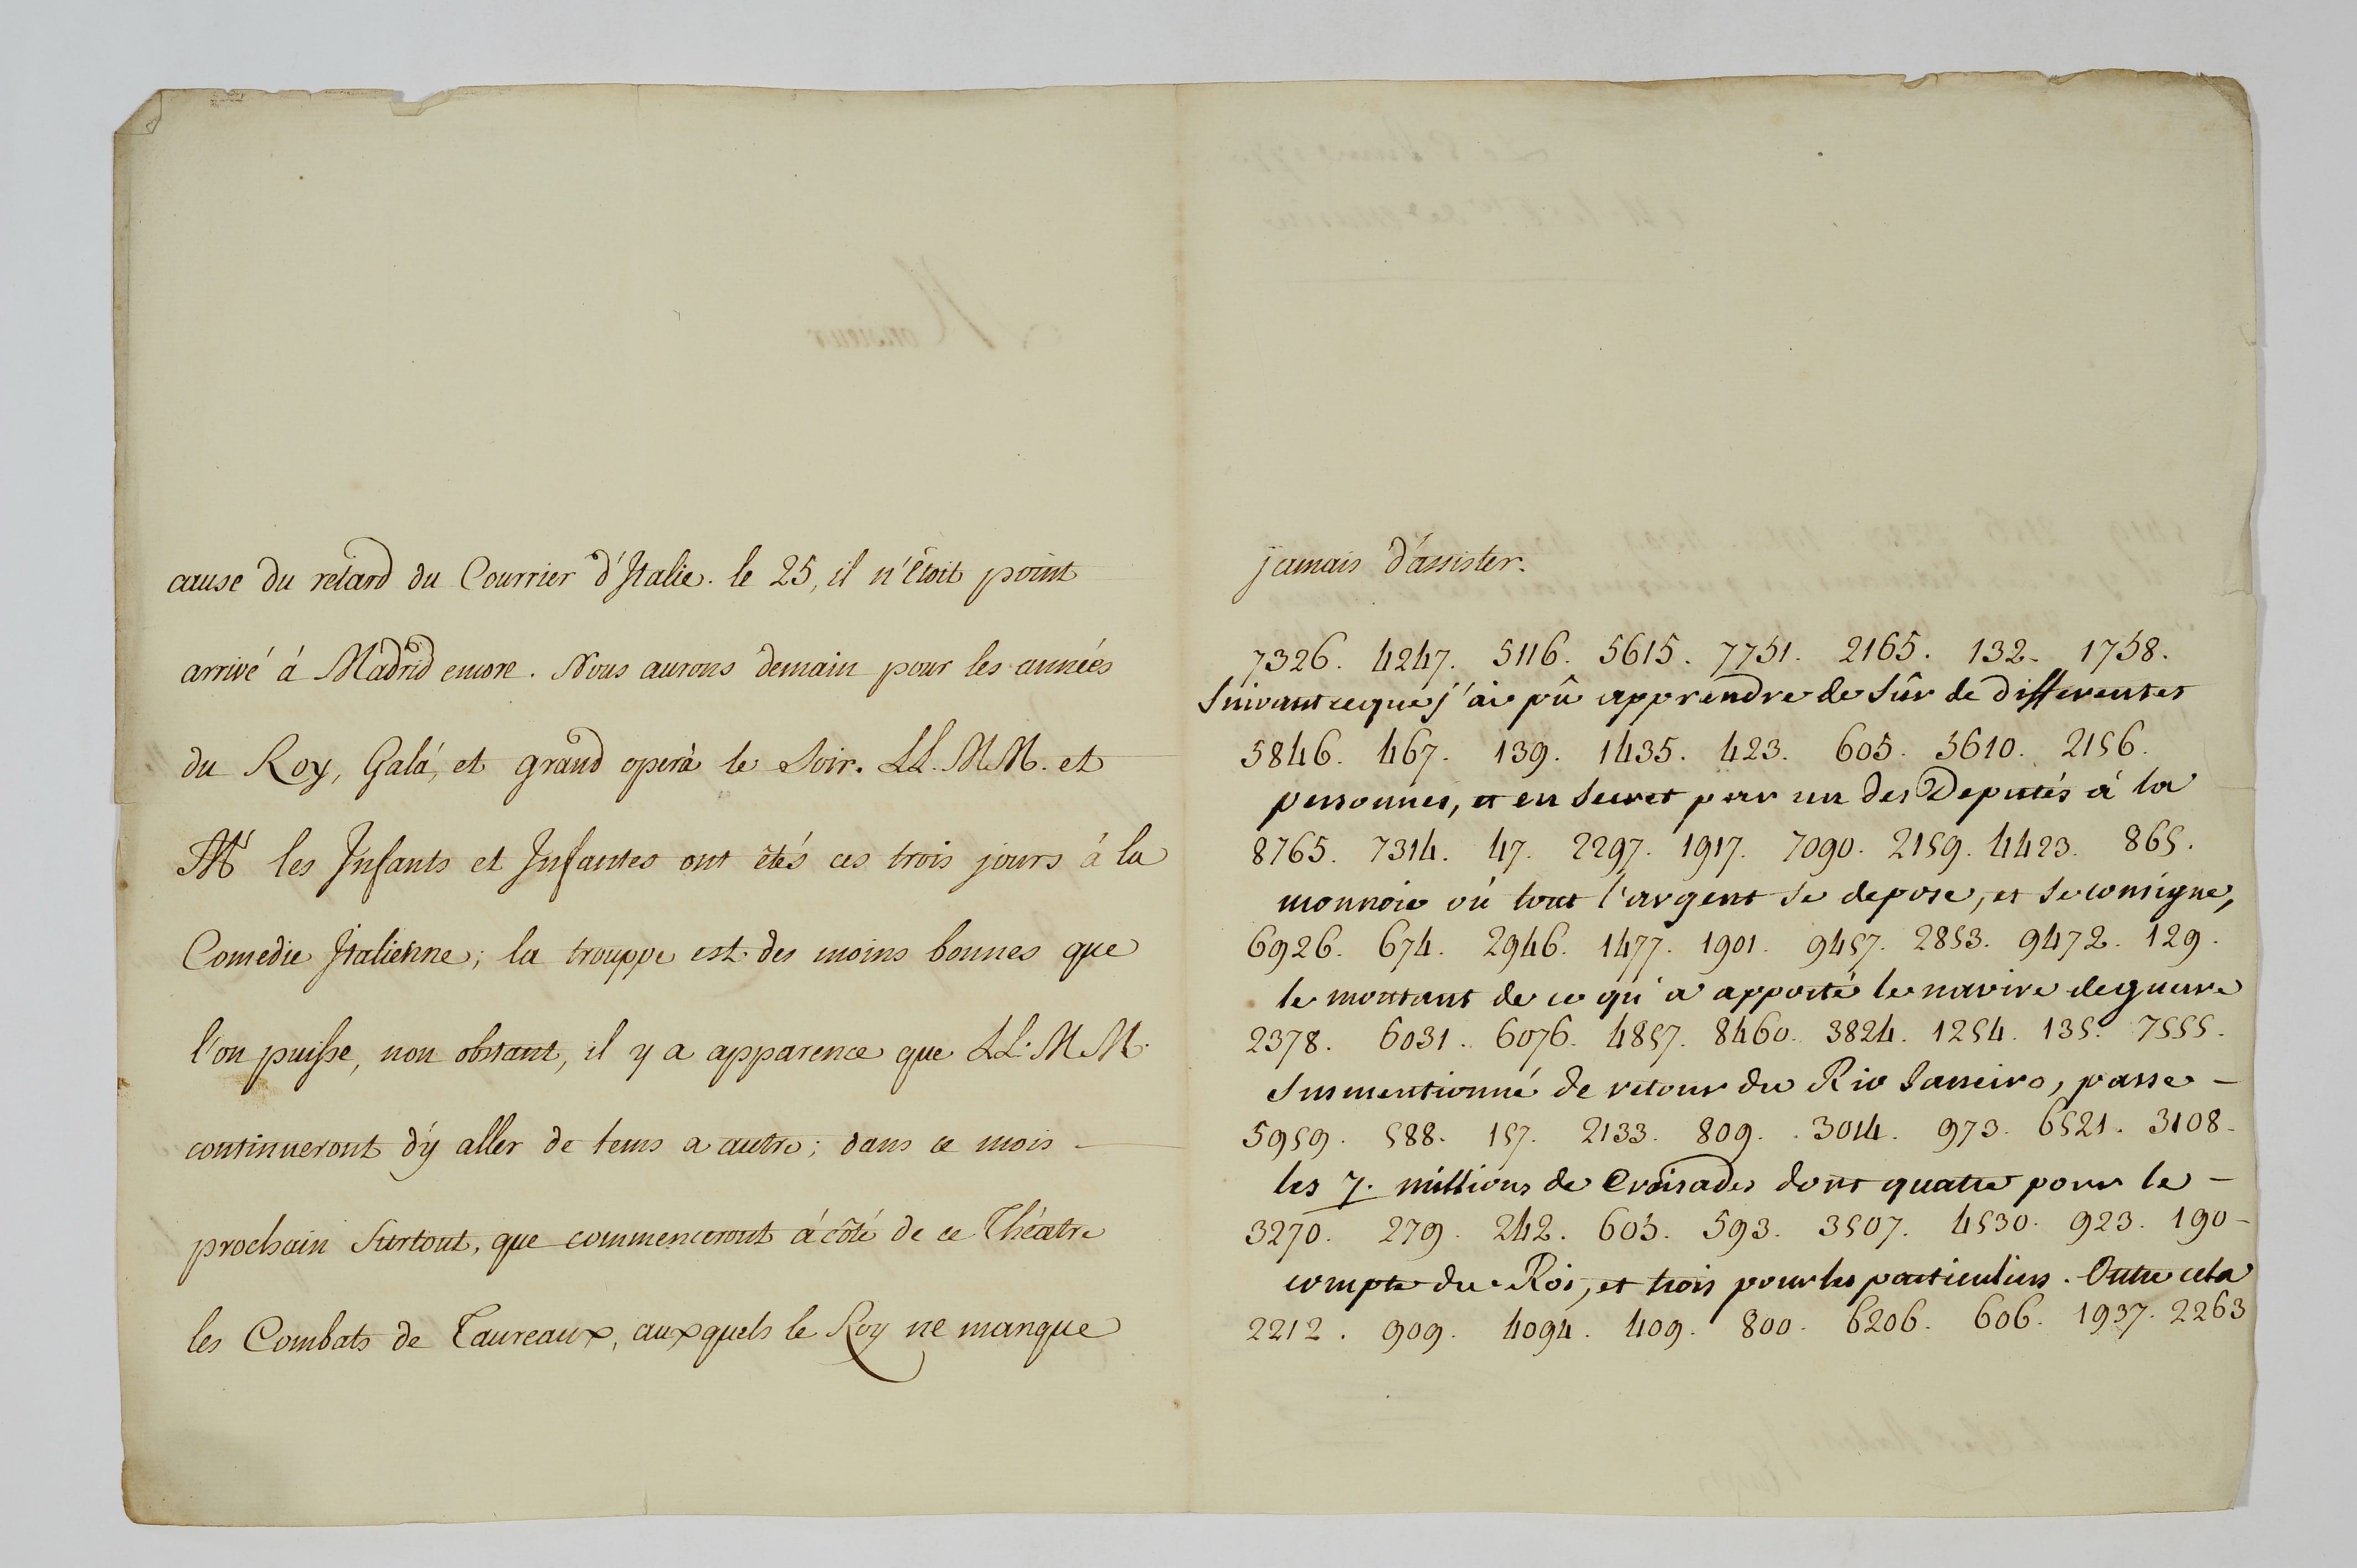 cause du retard du Courrier d'Italie. le 25, il n'étoit point
arrivé à Madrid encore. Nous aurons demain pour les années
du Roy, Galá, et grand operà le Soir. LL. MM. et
les Infants et Infantes ont étés ces trois jours à la
Comedie Italienne; la trouppe est des moins bonnes que
l'on puisse, non obstant, il y a apparence que LL. MM.
continueront d'y aller de tems a autre; dans ce mois
prochain Surtout, que commenceront à côté de ce Théatre
les Combats de Taureaux, auxquels le Roy ne manque
jamais d'assister.
7326. 4247. 5116. 5615. 7751. 2165. 132. 1758.
Suivant ce que j'ai pû apprendre de sûr de differentes
5846. 467. 139. 1435. 423. 605. 5610. 2156.
personnes, et en secret par un des Deputés à la
8765. 7314. 47. 2297. 1917. 7090. 2159. 4423. 865.
monnoie où tout l'argent se depose, et se consigne,
6926. 674. 2946. 1477. 1901. 9457. 2853. 9472. 129.
le montant de ce qu'a apporté le navire de guerre
2378. 6031. 6076. 4857. 8460. 3824. 1254. 135. 7555.
Susmentionné de retour du Rio Janeiro, passe –
5959. 588. 157. 2133. 809. 3014. 973. 6521. 3108.
les 7. millions de Croisades dont quatre pour le –
3270. 279. 242. 603. 593. 3507. 4530. 923. 190
compte du Roi, et trois pour les particuliers. Outre cela
2212. 909. 4094. 409. 800. 6206. 606. 1937. 2263